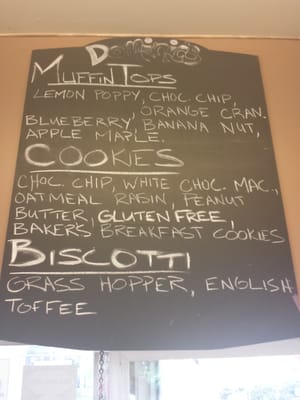 MUFFIN TOPS
LEMON POPPY, CHOC. CHIP,
ORANGE CRAN.
BLUEBERRY, BANANA NUT,
APPLE MAPLE.
COOKIES
CHOC. CHIP, WHITE CHOC. MAC.,
OATMEAL RAISIN, PEANUT
BUTTER, GLUTEN FREE,
BAKER'S BREAKFAST COOKIES
BISCOTTI
GRASS HOPPER, ENGLISH
TOFFEE